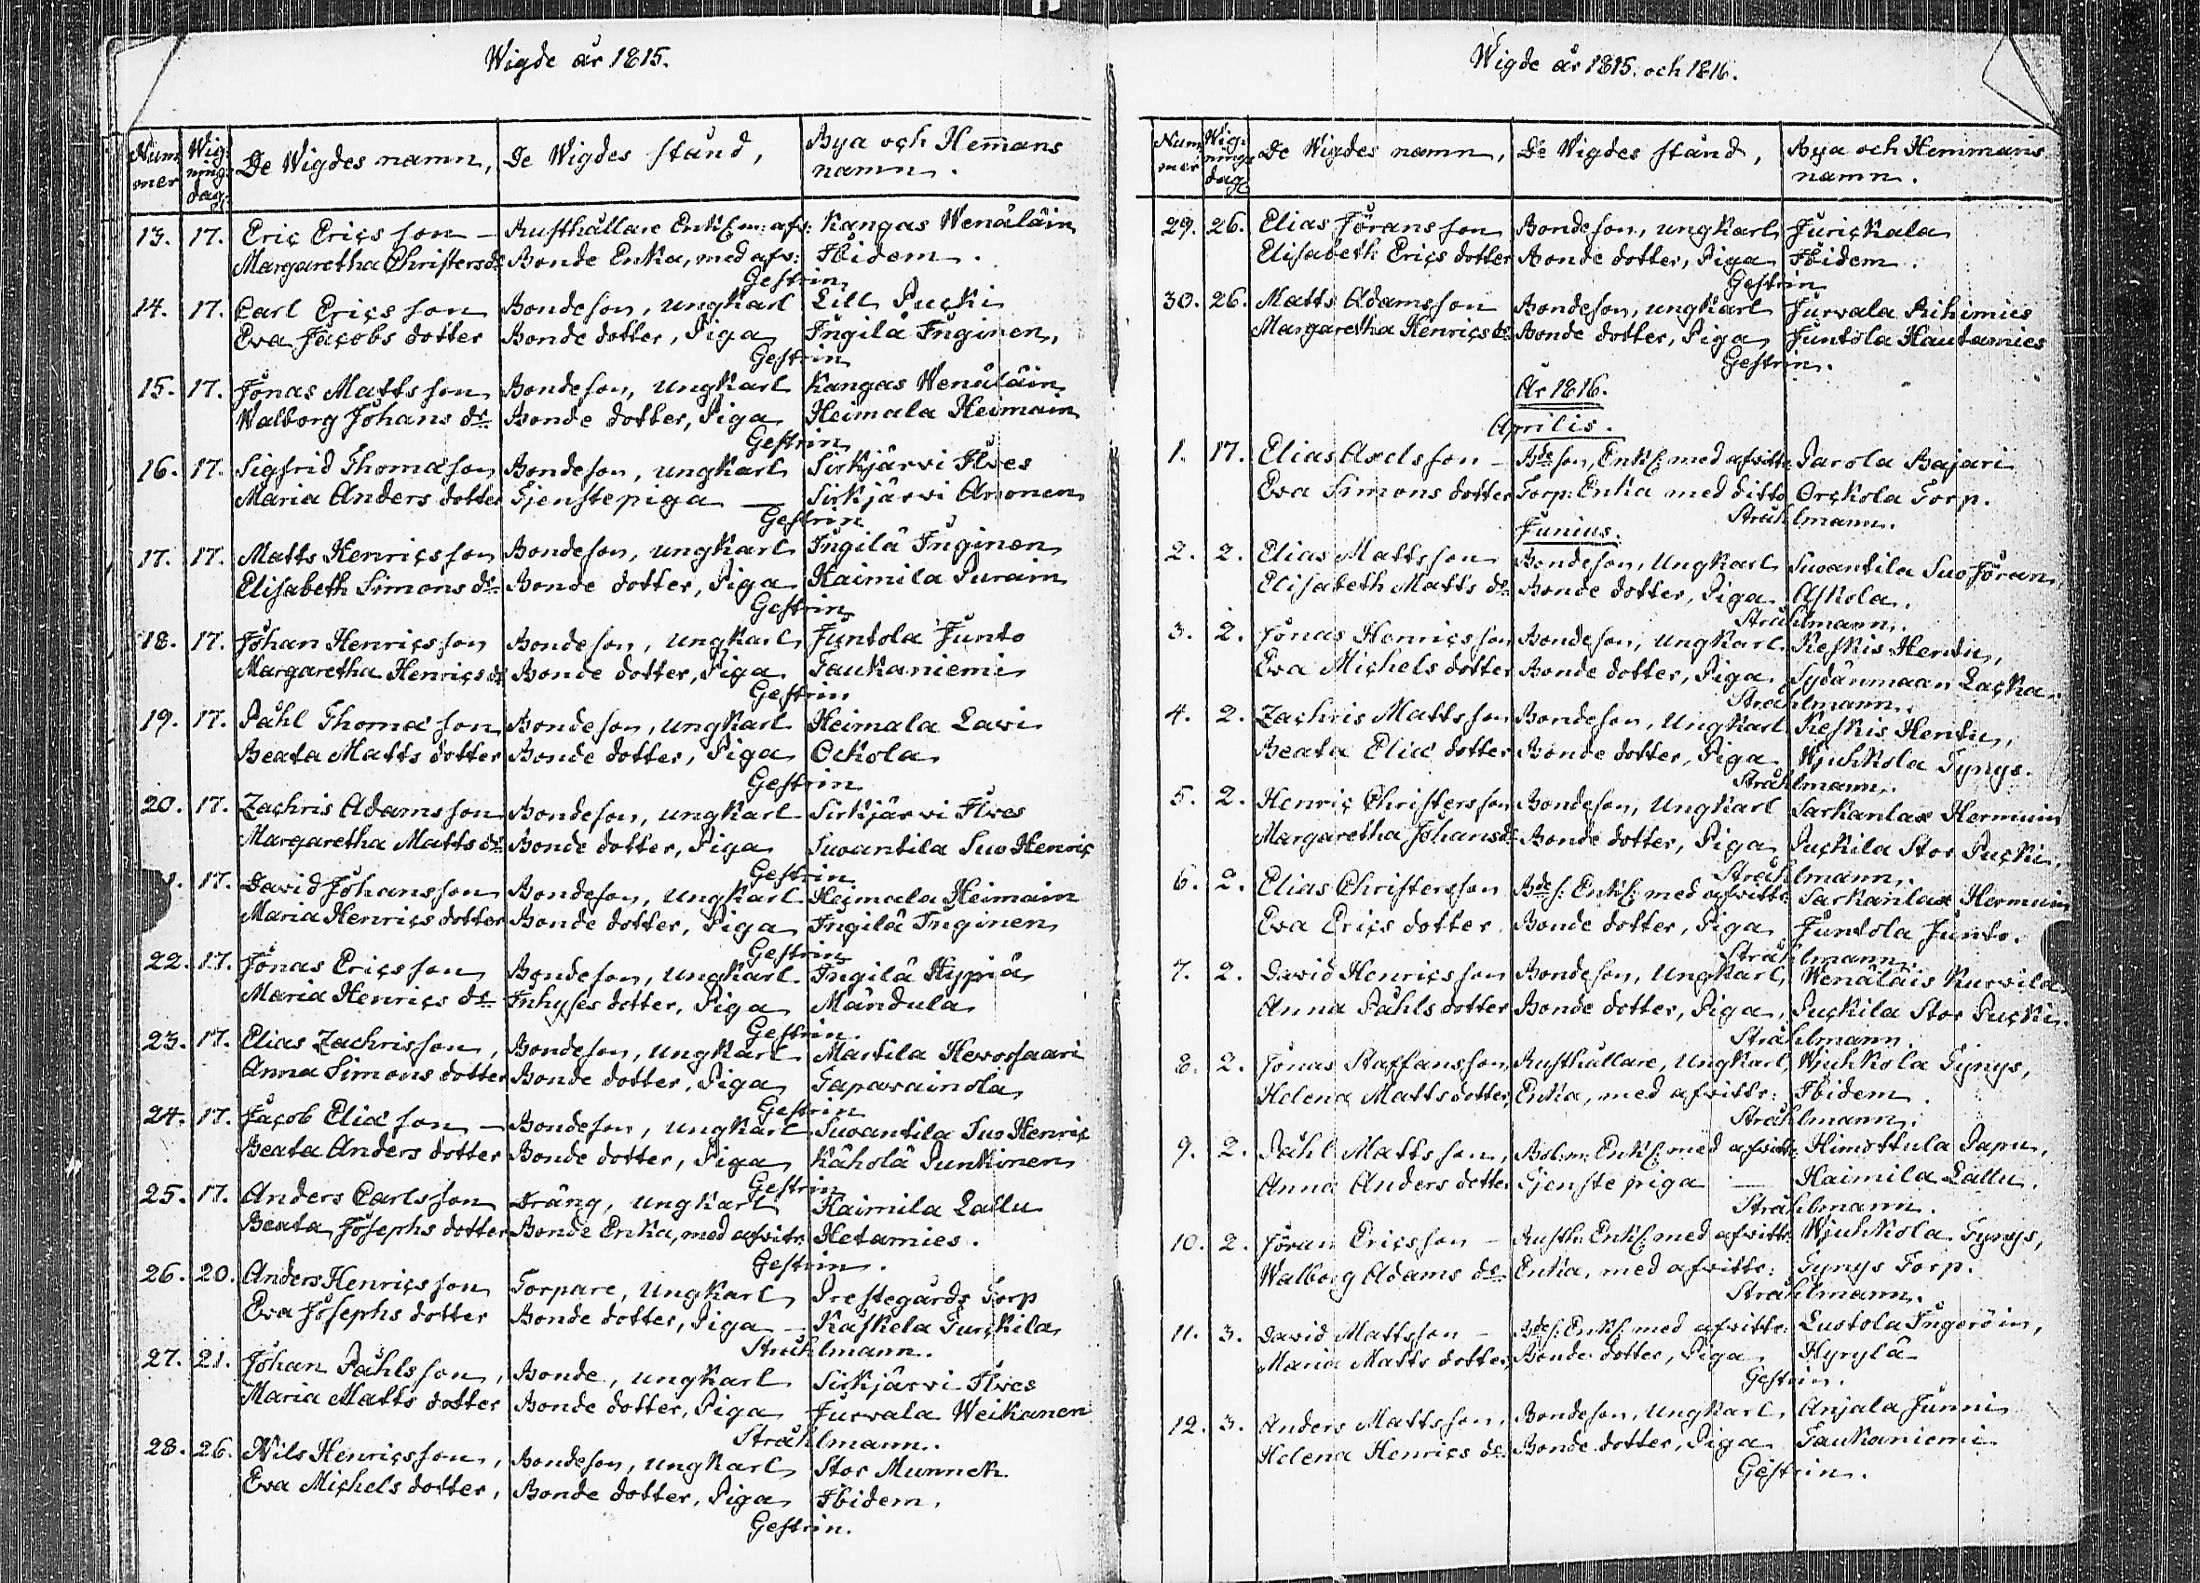 Wigde år 1815.
Num mer | Wig- nings dag. | De Wigdes namn, | De Wigdes stånd, | Bya och Hem̄ans namn.
13. 17. Eric Erics son — Rusthållare Enkl: m: afv: Kangas Wenäläin
Margaretha Christers dr Bonde Enka, med afv: Ibidem.
Gestrin
14. 17. Carl Erics son Bondeson, ungkarl Lill Pucki
Eva Jacobs dotter Bonde dotter, Piga Ingilä Inginen,
Gestrin
15. 17. Jonas Matts son Bondeson, ungkarl Kangas Wenäläin
Walborg Johans dr Bonde dotter, Piga Heimala Heimain
Gestrin
16. 17. Sigfrid Thomæson Bondeson, ungkarl Sirkjärvi Ilves
Maria Anders dotter Tjenstepiga — Sirkjärvi Anonen
Gestrin
17. 17. Matts Henricsson Bondeson, ungkarl Ingilä Inginen
Elisabeth Simons dr Bonde dotter, Piga Kaimila Purain
Gestrin
18. 17. Johan Henricsson Bondeson, ungkarl Juntola Junto
Margaretha Henrics dr Bonde dotter, Piga Taukaniemi
Gestrin
19. 17. Påhl Thomæ son Bondeson, ungkarl Heimala Lavi
Beata Matts dotter Bonde dotter, Piga Ockola
Gestrin
20. 17. Zachris Adamsson Bondeson, ungkarl Sirkjärvi Ilves
Margaretha Matts dr Bonde dotter, Piga Suoantila Suo Henric
Gestrin
1. 17. David Johansson Bondeson, ungkarl Heimala Heimain
Maria Henrics dotter Bonde dotter, Piga Ingilä Inginen
Gestrin
22. 17. Jonas Erics son Bondeson, ungkarl. Ingilä Hypiä
Maria Henrics dr Inhyses dotter, Piga Mändula
Gestrin
23. 17. Elias Zachrisson, Bondeson, ungkarl Martila Hevossaari
Anna Simons dotter Bonde dotter, Piga Tapavainola
Gestrin
24. 17. Jacob Eliæ son — Bondeson, ungkarl Suoantila Suo Henric
Beata Anders dotter Bonde dotter, Piga Kähölä Punkinen
Gestrin
25. 17. Anders Carlsson Dräng, ungkarl Kaimila Lallu
Beata Josephs dotter Bonde Enka, med afvitr: Hetamies.
Gestrin.
26. 20. Anders Henricsson Torpare, ungkarl Prestegårds Torp
Eva Josephs dotter Bonde dotter, Piga — Kaskela Turckila
Stråhlmann.
27. 21. Johan Påhls son, Bonde, ungkarl Sirkjärvi Ilves
Maria Matts dotter Bonde dotter, Piga Jurvala Weikanen
Stråhlmann.
28. 26. Nils Henricsson, Bondeson, ungkarl Stor Munnek
Eva Michels dotter, Bonde dotter, Piga Ibidem.
Gestrin.
Wigde år 1815. och 1816.
Num mer | Wig- nings dag. | De Wigdes namn, | De Wigdes stånd, | Bya och Hemmans namn.
29. 26. Elias Jörans son Bondeson, ungkarl Jurickala
Elisabeth Erics dotter Bonde dotter, Piga Ibidem.
Gestrin
30. 26. Matts Adamsson Bondeson, ungkarl Jurvala Rihimies
Margaretha Henrics dr Bonde dotter, Piga Juntola Hautamies
Gestrin.
År 1816.
Aprilis.
1. 17. Elias Axelsson — Bde son, Enkl: med afvitt: Parola Bajari
Eva Simons dotter Torp: Enka med ditto Orckola Torp.
Stråhlmann.
Junius.
2. 2. Elias Mattsson Bondeson, Ungkarl Suoantila Suo Jöran,
Elisabeth Matts dr Bonde dotter, Piga Askola.
Stråhlmann.
3. 2. Jonas Henricsson Bondeson, ungkarl Keskis Hentu,
Eva Michels dotter Bonde dotter, Piga Sydänmaan Lacka.
Stråhlmann.
4. 2. Zachris Mattsson Bondeson, ungkarl Keskis Hentu,
Beata Eliæ dotter Bonde dotter, Piga Kjuhkola Tynys.
Stråhlmann.
5. 2. Henric Christersson Bondeson, ungkarl Sarkanlax Hermuin
Margaretha Johans dr Bonde dotter, Piga Puckila Stor Pucki.
Stråhlmann.
6. 2. Elias Christersson Bde s: Enkl: med afvittr Sarkanlax Hermuin
Eva Erics dotter Bonde dotter, Piga Juntola Junto.
Stråhlmann.
7. 2. David Henricsson Bondeson, Ungkarl, Wenäläis Kurvila
Anna Påhls dotter Bonde dotter, Piga, Puckila Stor Pucki.
Stråhlmann
8. 2. Jonas Staffansson, Rusthållare, Ungkarl, Kjuhkola Tynys,
Helena Matts dotter, Enka, med afvittr: Ibidem.
Stråhlmann.
9. 2. Påhl Matts son, Bol:m: Enkl: med afvittr: Himottula Papu,
Anna Anders dotter Tjenstepiga — Kaimila Lallu.
Stråhlmann.
10. 2. Jöran Ericsson — Rusth: Enkl: med afvittr Kjuhkola Tynys,
Walborg Adams dr Enka, med afvittr: Tynys Torp.
Stråhlmann.
11. 3. David Mattsson — Bde s: Enkl: med afvittr: Lustola Ingeröin,
Maria Matts dotter, Bonde dotter, Piga Hyrylä
Gestrin.
12. 3. Anders Mattsson, Bondeson, Ungkarl, Anjala Junni
Helena Henrics dr Bonde dotter, Piga Taukaniemi
Gestrin.